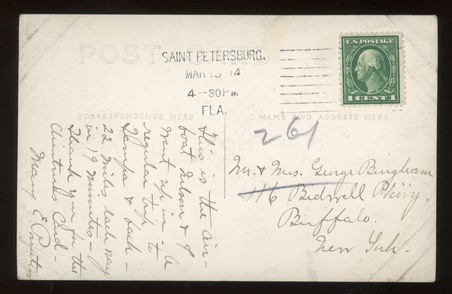 POST
SAINT PETERSBURG,
MAR 14
4--30PM
FLA.
U.S. POSTAGE
1 CENT 1
CORRESPONDENCE HERE
NAME AND ADDRESS HERE
261
Mr. & Mrs. George Bingham
116 Bidwell Pkwy.
Buffalo.
New York.
This is the air-
boat Nelson & I
went up in - A
regular trip to
Tampa & back -
22 miles each way
in 19 minutes -
Thank you for the
Christmas Card -
Mary E.